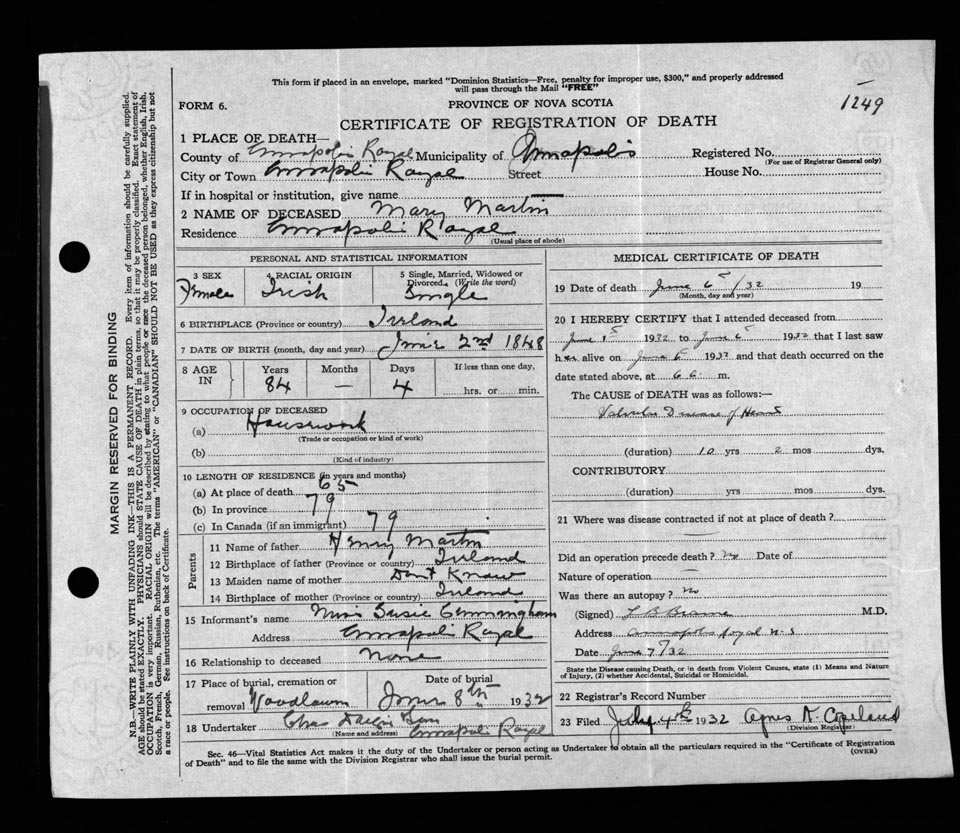 This form if placed in an envelope, marked "Dominion Statistics—Free, penalty for improper use, $300," and properly addressed
will pass through the Mail "FREE"
1249
FORM 6.
PROVINCE OF NOVA SCOTIA
CERTIFICATE OF REGISTRATION OF DEATH
1 PLACE OF DEATH—
County of Annapolis Royal Municipality of Annapolis Registered No.
(For use of Registrar General only)
City or Town Annapolis Royal Street House No.
If in hospital or institution, give name
2 NAME OF DECEASED Mary Martin
Residence Annapolis Royal
(Usual place of abode)
PERSONAL AND STATISTICAL INFORMATION
3 SEX 4 RACIAL ORIGIN 5 Single, Married, Widowed or
Divorced. (Write the word)
Female Irish Single
6 BIRTHPLACE (Province or country) Ireland
7 DATE OF BIRTH (month, day and year) June 2nd 1848
8 AGE IN Years Months Days If less than one day,
84 — 4 hrs. or min.
9 OCCUPATION OF DECEASED
(a) Housework
(Trade or occupation or kind of work)
(b)
(Kind of industry)
10 LENGTH OF RESIDENCE (in years and months)
(a) At place of death 65
(b) In province 79
(c) In Canada (if an immigrant) 79
Parents
11 Name of father Henry Martin
12 Birthplace of father (Province or country) Ireland
13 Maiden name of mother Dont Know
14 Birthplace of mother (Province or country) Ireland
15 Informant's name Miss Susie Cunningham
Address Annapolis Royal
16 Relationship to deceased None
17 Place of burial, cremation or Date of burial
removal Woodlawn June 8th 1932
18 Undertaker Chas
(Name and address) Annapolis Royal
MEDICAL CERTIFICATE OF DEATH
19 Date of death June 6 /32 19
(Month, day and year)
20 I HEREBY CERTIFY that I attended deceased from
June 1 1932 to June 6 1932 that I last saw
her alive on June 6 1932 and that death occurred on the
date stated above, at 6 a. m.
The CAUSE of DEATH was as follows:—
Valvular Disease of Heart
(duration) 10 yrs 2 mos dys.
CONTRIBUTORY
(duration) yrs mos dys.
21 Where was disease contracted if not at place of death?
—
Did an operation precede death? No Date of
Nature of operation —
Was there an autopsy? No
(Signed) L B M.D.
Address Annapolis Royal N.S
Date June 7/32
State the Disease causing Death, or in death from Violent Causes, state (1) Means and Nature
of Injury, (2) whether Accidental, Suicidal or Homicidal.
22 Registrar's Record Number
23 Filed July 4th 1932 Agnes N. Copeland
(Division Registrar)
Sec. 46—Vital Statistics Act makes it the duty of the Undertaker or person acting as Undertaker to obtain all the particulars required in the "Certificate of Registration
of Death" and to file the same with the Division Registrar who shall issue the burial permit.
(OVER)
MARGIN RESERVED FOR BINDING
N.B.—WRITE PLAINLY WITH UNFADING INK—THIS IS A PERMANENT RECORD. Every item of information should be carefully supplied.
AGE should be stated EXACTLY. PHYSICIANS should STATE CAUSE OF DEATH in plain terms, so that it may be properly classified. Exact statement of
OCCUPATION is very important. RACIAL ORIGIN will be described by stating to what people or race the deceased person belonged, whether English, Irish,
Scotch, French, German, Russian, Ruthenian, etc. The terms "AMERICAN" or "CANADIAN" SHOULD NOT BE USED as they express citizenship but not
a race or people. See instructions on back of Certificate.